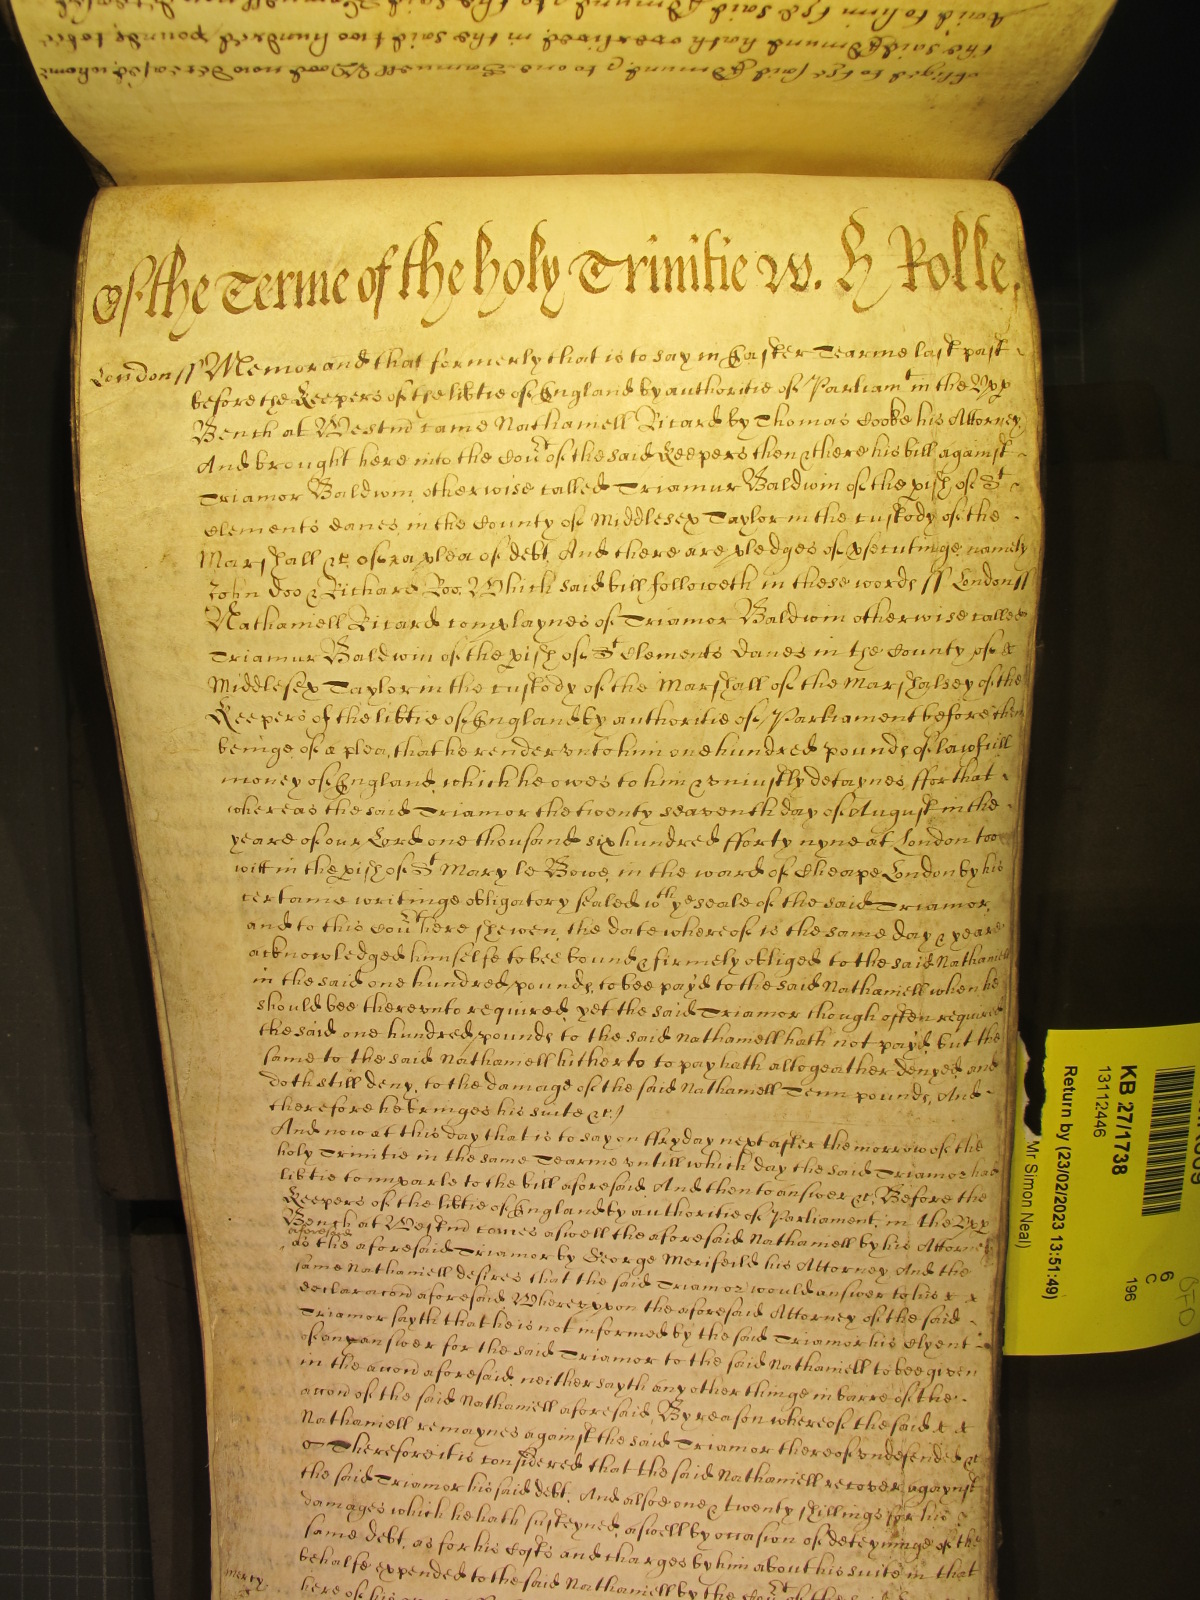 obliged to the said Edmund & to one Samuell Wood now deceased whome
the said Edmund hath overlived in the said two hundred pounds to bee
paid to him the said Edmund & to the said Samuell
Of the Terme of the holy Trinitie w. H Rolle.
London ss Memorand that formerly that is to say in Easter Tearme last past
before the Keepers of the libtie of England by authoritie of Parliamt in the Upp
Bench at Westm came Nathaniell Ricard by Thomas Cooke his Attorney
And brought here into the Court of the said Keepers then & there his bill against
Triamor Baldwin otherwise called Triamur Baldwin of the pish of St
Clements Danes in the County of Middlesex Taylor in the custody of the
Marshall &c of a plea of debt And there are pledges of psecutinge namely
John Doo & Richard Roo Which said bill followeth in these words ss London ss
Nathaniell Ricard complaynes of Triamor Baldwin otherwise called
Triamur Baldwin of the pish of St Clements Danes in the County of
Middlesex Taylor in the custody of the Marshall of the Marshalsey of the
Keepers of the libtie of England by authoritie of Parliament before them
beinge of a plea, that he render unto him one hundred pounds of lawfull
money of England, which he owes to him & uniustly detaynes ffor that
whereas the said Triamor the twenty seaventh day of August in the
yeare of our Lord one thousand six hundred fforty nyne at London too
witt in the pish of St Mary le Bowe in the ward of Cheape London by his
certaine writinge obligatory sealed wth ye seale of the said Triamor,
and to this Court here shewen, the date whereof is the same day & yeare
acknowledged himselfe to bee bound & firmely obliged to the said Nathaniell
in the said one hundred pounds, to bee payd to the said Nathaniell when he
should bee thereunto required, yet the said Triamor though often required
the said one hundred pounds to the said Nathaniell hath not payd, but the
same to the said Nathaniell hitherto to pay hath altogeather denyed and
doth still deny, to the damage of the said Nathaniell Tenn pounds, And
therefore he bringes his suite &c /
And now at this day that is to say on ffryday next after the morrow of the
holy Trinitie in the same Tearme untill which day the said Triamor had
libtie to imparle to the bill aforesaid And then to answer &c, Before the
Keepers of the libtie of England by authoritie of Parliament, in the Upp
Bench at Westm comes aswell the aforesaid Nathaniell by his Attorney
aforesaid
as the aforesaid Triamor by George Merifeild his Attorney And the
same Nathaniell desires that the said Triamor would answer to his
declaracon aforesaid Whereuppon the aforesaid Attorney of the said
Triamor sayth that he is not informed by the said Triamor his Clyent
of any answer for the said Triamor to the said Nathaniell to bee given
in the accon aforesaid, neither sayth any other thinge in barre of the
accon of the said Nathaniell aforesaid, By reason whereof the said
Nathaniell remaynes against the said Triamor thereof undefended &c
Therefore it is considered that the said Nathaniell recover agaynst
the said Triamor his said debt. And alsoe one & twenty shillings for his
damages which he hath susteyned, aswell by occasion of deteyninge of the
same debt, as for his Costs and charges by him about his suite in that
behalfe expended to the said Nathaniell by the Court of the
mercy
KB 27/1738
13112446
Return by (23/02/2023 13:51:49)
Mr Simon Neal)
6
C
196